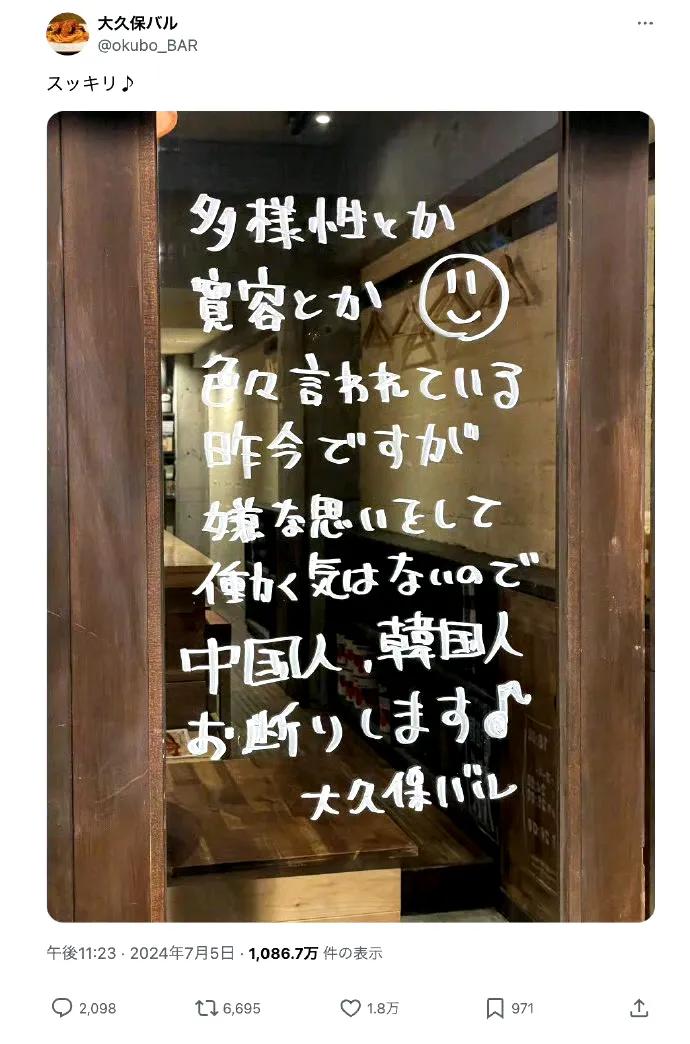 大久保バル
@okubo_BAR
スッキリ♪
多様性とか
寛容とか
色々言われている
昨今ですが
嫌な思いをして
働く気はないので
中国人、韓国人
お断りします♪
大久保バル
午後11:23 · 2024年7月5日 · 1,086.7万 件の表示
2,098 6,695 1.8万 971